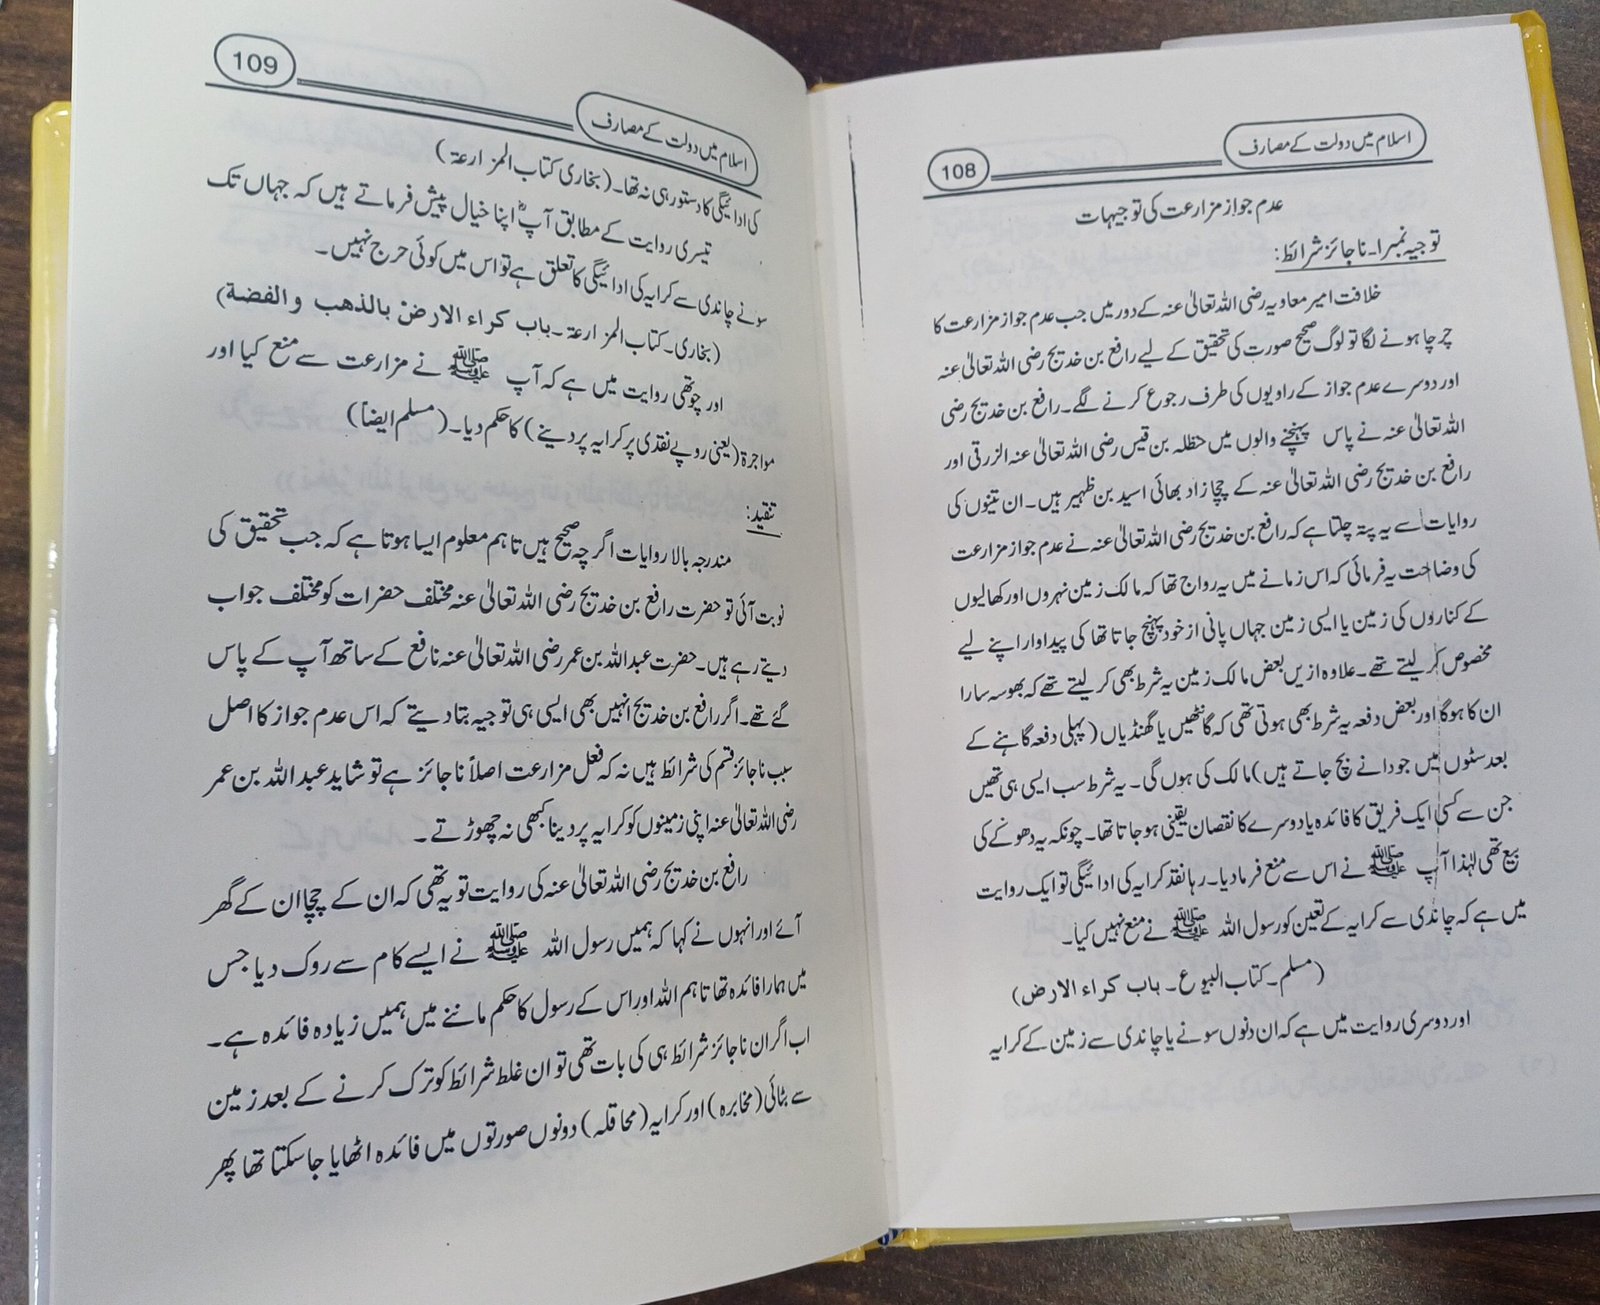 اسلام میں دولت کے مصارف
108
عدم جواز مزارعت کی توجیہات
توجیہ نمبر۱۔ ناجائز شرائط:
خلافت امیر معاویہ رضی اللہ تعالیٰ عنہ کے دور میں جب عدم جواز مزارعت کا
چرچا ہونے لگا تو لوگ صحیح صورت کی تحقیق کے لیے رافع بن خدیج رضی اللہ تعالیٰ عنہ
اور دوسرے عدم جواز کے راویوں کی طرف رجوع کرنے لگے۔ رافع بن خدیج رضی
اللہ تعالیٰ عنہ نے پاس پہنچنے والوں میں حنظلہ بن قیس رضی اللہ تعالیٰ عنہ الزرقی اور
رافع بن خدیج رضی اللہ تعالیٰ عنہ کے چچا زاد بھائی اسید بن ظہیر ہیں۔ ان تینوں کی
روایات سے یہ پتہ چلتا ہے کہ رافع بن خدیج رضی اللہ تعالیٰ عنہ نے عدم جواز مزارعت
کی وضاحت یہ فرمائی کہ اس زمانے میں یہ رواج تھا کہ مالک زمین نہروں اور کھالیوں
کے کناروں کی زمین یا ایسی زمین جہاں پانی از خود پہنچ جاتا تھا کی پیداوار اپنے لیے
مخصوص کر لیتے تھے۔ علاوہ ازیں بعض مالک زمین یہ شرط بھی کر لیتے تھے کہ بھوسہ سارا
ان کا ہوگا اور بعض دفعہ یہ شرط بھی ہوتی تھی کہ گانٹھیں یا گھنڈیاں (پہلی دفعہ گاہنے کے
بعد سٹوں میں جو دانے بچ جاتے ہیں) مالک کی ہوں گی۔ یہ شرط سب ایسی ہی تھیں
جن سے کسی ایک فریق کا فائدہ یا دوسرے کا نقصان یقینی ہو جاتا تھا۔ چونکہ یہ دھوکے کی
بیع تھی لہٰذا آپ ﷺ نے اس سے منع فرما دیا۔ رہا نقد کرایہ کی ادائیگی تو ایک روایت
میں ہے کہ چاندی سے کرایہ کے تعین کو رسول اللہ ﷺ نے منع نہیں کیا۔
(مسلم۔ کتاب البیوع۔ باب کراء الارض)
اور دوسری روایت میں ہے کہ ان دنوں سونے یا چاندی سے زمین کے کرایہ
اسلام میں دولت کے مصارف
109
کی ادائیگی کا دستور ہی نہ تھا۔ (بخاری کتاب المزارعة)
تیسری روایت کے مطابق آپؓ اپنا خیال پیش فرماتے ہیں کہ جہاں تک
سونے چاندی سے کرایہ کی ادائیگی کا تعلق ہے تو اس میں کوئی حرج نہیں۔
(بخاری۔ کتاب المزارعة۔ باب کراء الارض بالذهب والفضة)
اور چوتھی روایت میں ہے کہ آپ ﷺ نے مزارعت سے منع کیا اور
مواجرة (یعنی روپے نقدی پر کرایہ پر دینے) کا حکم دیا۔ (مسلم ایضاً)
تنقید:
مندرجہ بالا روایات اگرچہ صحیح ہیں تاہم معلوم ایسا ہوتا ہے کہ جب تحقیق کی
نوبت آئی تو حضرت رافع بن خدیج رضی اللہ تعالیٰ عنہ مختلف حضرات کو مختلف جواب
دیتے رہے ہیں۔ حضرت عبداللہ بن عمر رضی اللہ تعالیٰ عنہ نافع کے ساتھ آپ کے پاس
گئے تھے۔ اگر رافع بن خدیج انہیں بھی ایسی ہی توجیہ بتا دیتے کہ اس عدم جواز کا اصل
سبب ناجائز قسم کی شرائط ہیں نہ کہ فعل مزارعت اصلاً ناجائز ہے تو شاید عبداللہ بن عمر
رضی اللہ تعالیٰ عنہ اپنی زمینوں کو کرایہ پر دینا کبھی نہ چھوڑتے۔
رافع بن خدیج رضی اللہ تعالیٰ عنہ کی روایت تو یہ تھی کہ ان کے چچا ان کے گھر
آئے اور انہوں نے کہا کہ ہمیں رسول اللہ ﷺ نے ایسے کام سے روک دیا جس
میں ہمارا فائدہ تھا تاہم اللہ اور اس کے رسول کا حکم ماننے میں ہمیں زیادہ فائدہ ہے۔
اب اگر ان ناجائز شرائط ہی کی بات تھی تو ان غلط شرائط کو ترک کرنے کے بعد زمین
سے بٹائی (مخابرہ) اور کرایہ (محاقلہ) دونوں صورتوں میں فائدہ اٹھایا جا سکتا تھا پھر